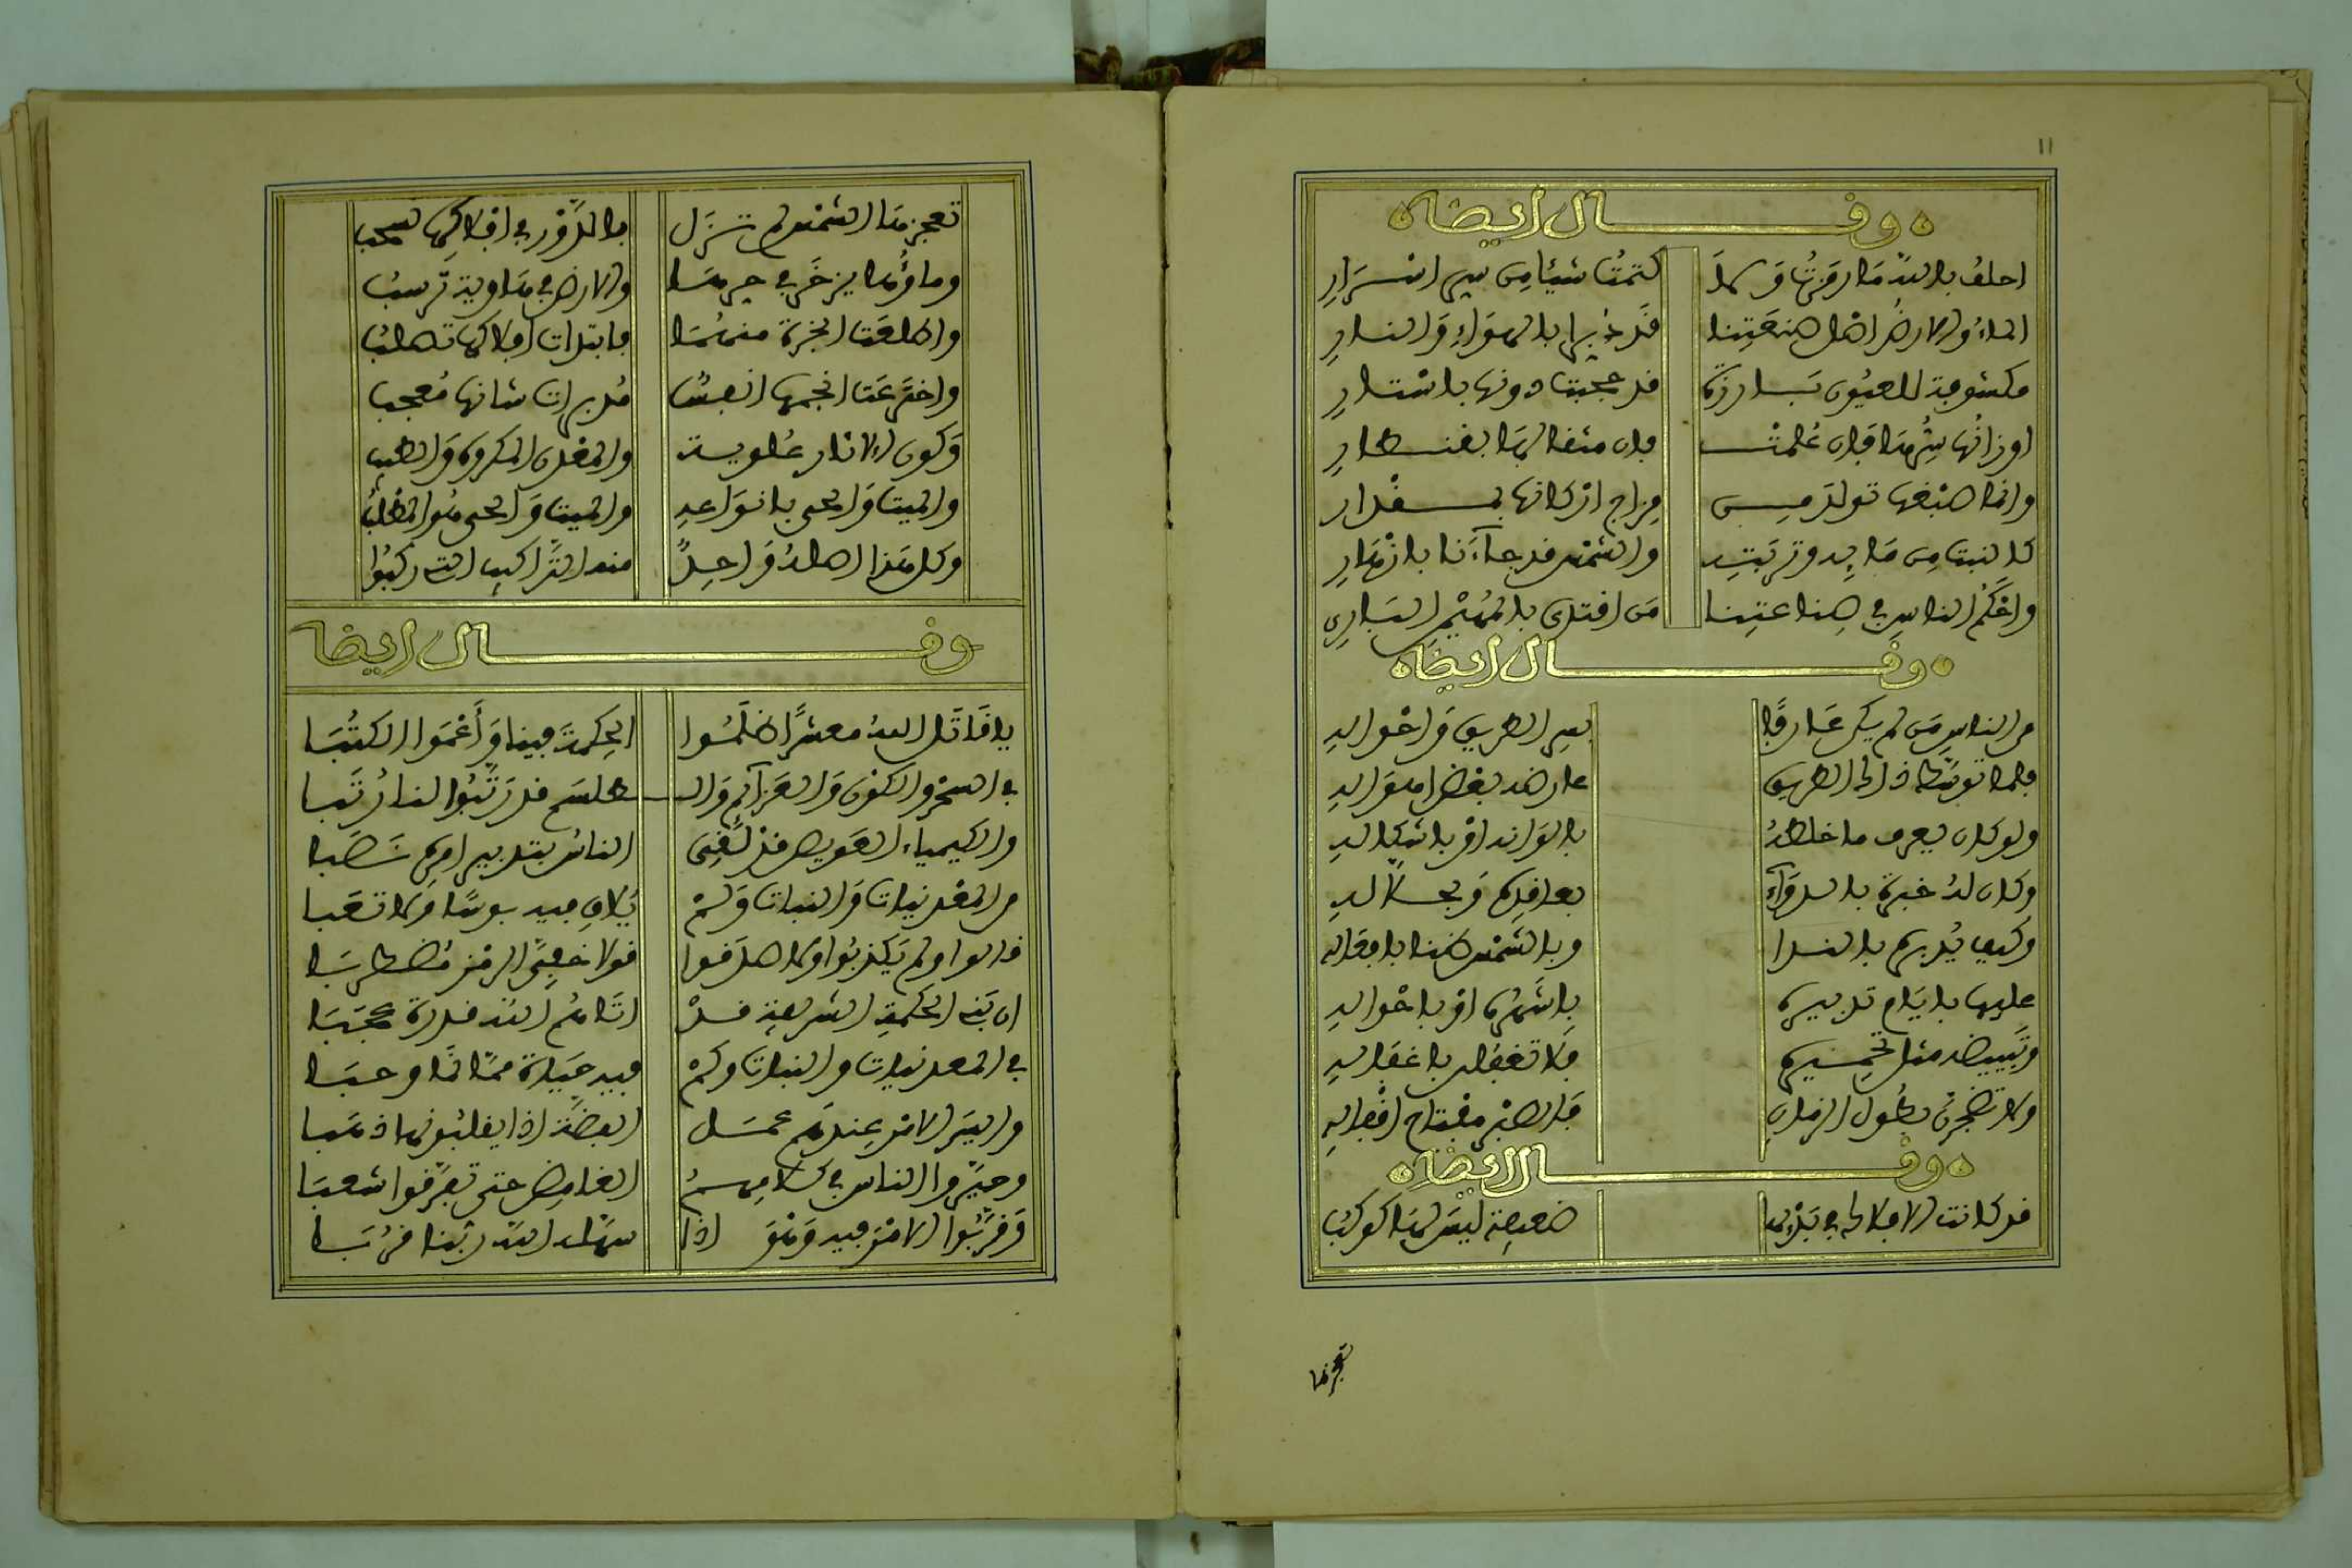 ١١
وقال ايضا
احلف بالله ما رمزت ولا كتمت شيئا من سر اسرار
الماء والارض اصل صنعتنا قد دبرا بالهواء والنار
مكشوفة للعيون بارزة قد حجبت دونها باستار
اوزانها سرها فان علمت فان مثقالها بقنطار
وانما صبغها تولد من مزاج اركانها بمقدار
كالنبت من مائه وتربته والشمس قد جاءنا بازهار
واحكم الناس في صناعتنا من اقتدى بالمهيمن الباري
وقال ايضا
من الناس من لم يكن عارفا بسر الطريق واحواله
فلما توسط ذاك الطريق عارضه بعض اهواله
ولو كان يعرف ما خلطه بالوانه او باشكاله
وكان له خبرة بالدواء بعاقده وبحلاله
وكيف يدبره بالندا وبالشمس طبنا بافعاله
عليها بايام تدبيره باشهره او باحواله
وتبييضه مثل تحميره فلا تغفلن باغفاله
ولا تضجرن بطول الزمان فالصبر مفتاح اقفاله
وقال ايضا
قد كانت الافلاك في بدئها ضعيفة ليس لها كوكب
تعجزها
تعجزها الشمس لم تزل بالدور في افلاكها تسحب
وماؤها يزخر في جرمها والارض في هاوية ترسب
واطلعت ابخرة منهما فابتدات افلاكها تطلب
واخترعت انجمها انفسا مدبرات شانها معجب
وكون الاثار علوية والمعدن المكروه والطيب
والميت والحي بانواعه والميت والحي هو المطلب
وكل هذا اصله واحد منه التراكيب التي ركبوا
وقال ايضا
يا قاتل الله معشرا ظلموا الحكمة فينا واعموا الكتبا
في السحر والكون والعزائم والطلسم قد رتبوا لنا رتبا
والكيمياء العويص قد لقي الناس بتدبير امره نصبا
من المعدنيات والنبات ولم يلاق فيه بوسا ولا تعبا
قالوا ولم يكذبوا ولا صدقوا قولا خفي الرمز مضطربا
ان بني الحكمة الشريفة قد اتاهم الله قدرة عجبا
في المعدنيات والنبات وكم فيه حياة مما نما وحبا
واليسر الامر عندهم عمل الفضة اذا يقلبونها ذهبا
وحيروا الناس في كلامهم الغامض حتى تفرقوا شعبا
وقربوا الامر فيه وهو اذا سهله الله ربنا قربا